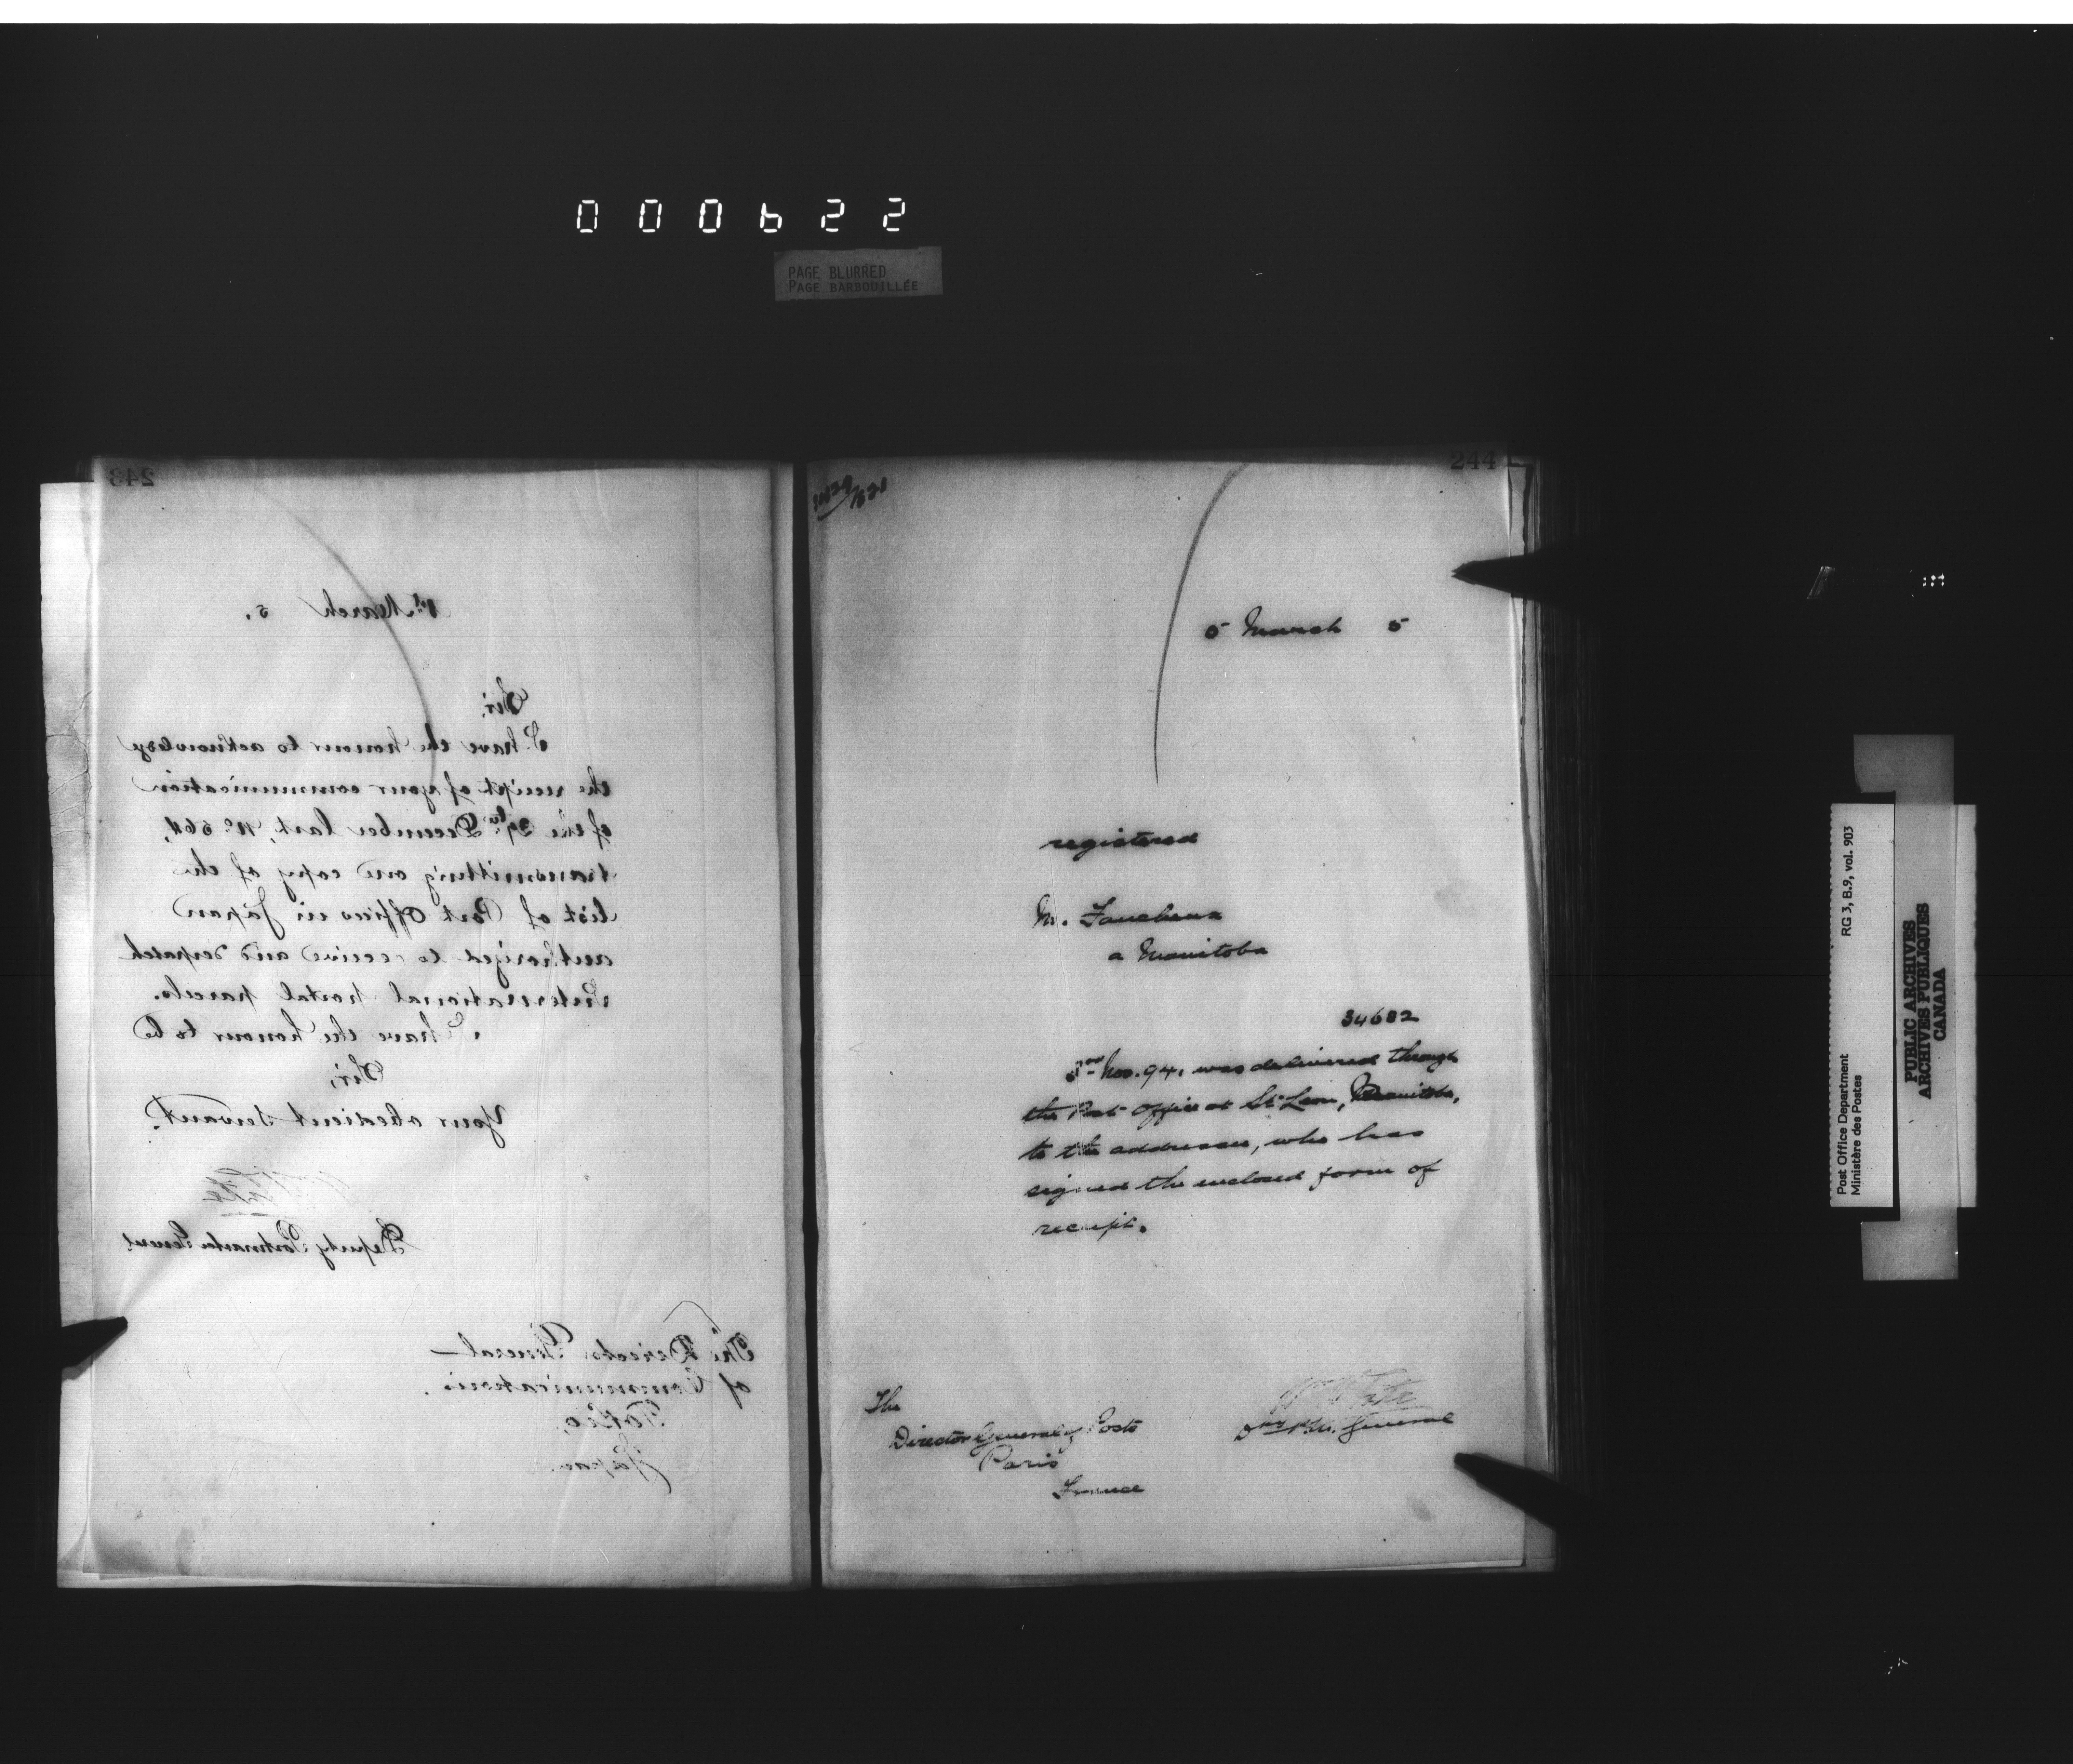 000622
PAGE BLURRED
PAGE BARBOUILLÉE
243
1st March 5.
Sir,
I have the honour to acknowledge
the receipt of your communication
of the 29th December last, No 564,
transmitting one copy of the
list of Post Offices in Japan
authorized to receive and despatch
international postal parcels.
I have the honour to be
Sir,
Your obedient servant.
Deputy Postmaster General
The Director General
of Communications.
Tokio,
Japan.
244
5 March 5
registered
M.
a Manitoba
34682
Nov. 94, was delivered through
the Post Office at St Leon, Manitoba,
to the addressee, who has
signed the enclosed form of
receipt.
The
Director General of Posts
Paris
France
Dy P.M. General
Post Office Department
Ministère des Postes
RG 3, B.9, vol. 903
PUBLIC ARCHIVES
ARCHIVES PUBLIQUES
CANADA